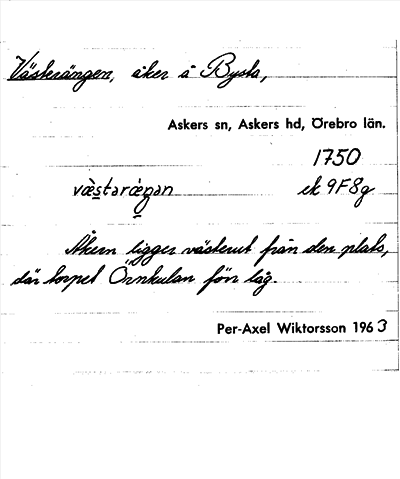 Västerängen, åker å Bysta,
Askers sn, Askers hd, Örebro län.
1750
væ̀stəræ̀ŋən ek 9F8g
Åkern ligger västerut från den plats,
där torpet Örnkulan förr låg.
Per-Axel Wiktorsson 1963